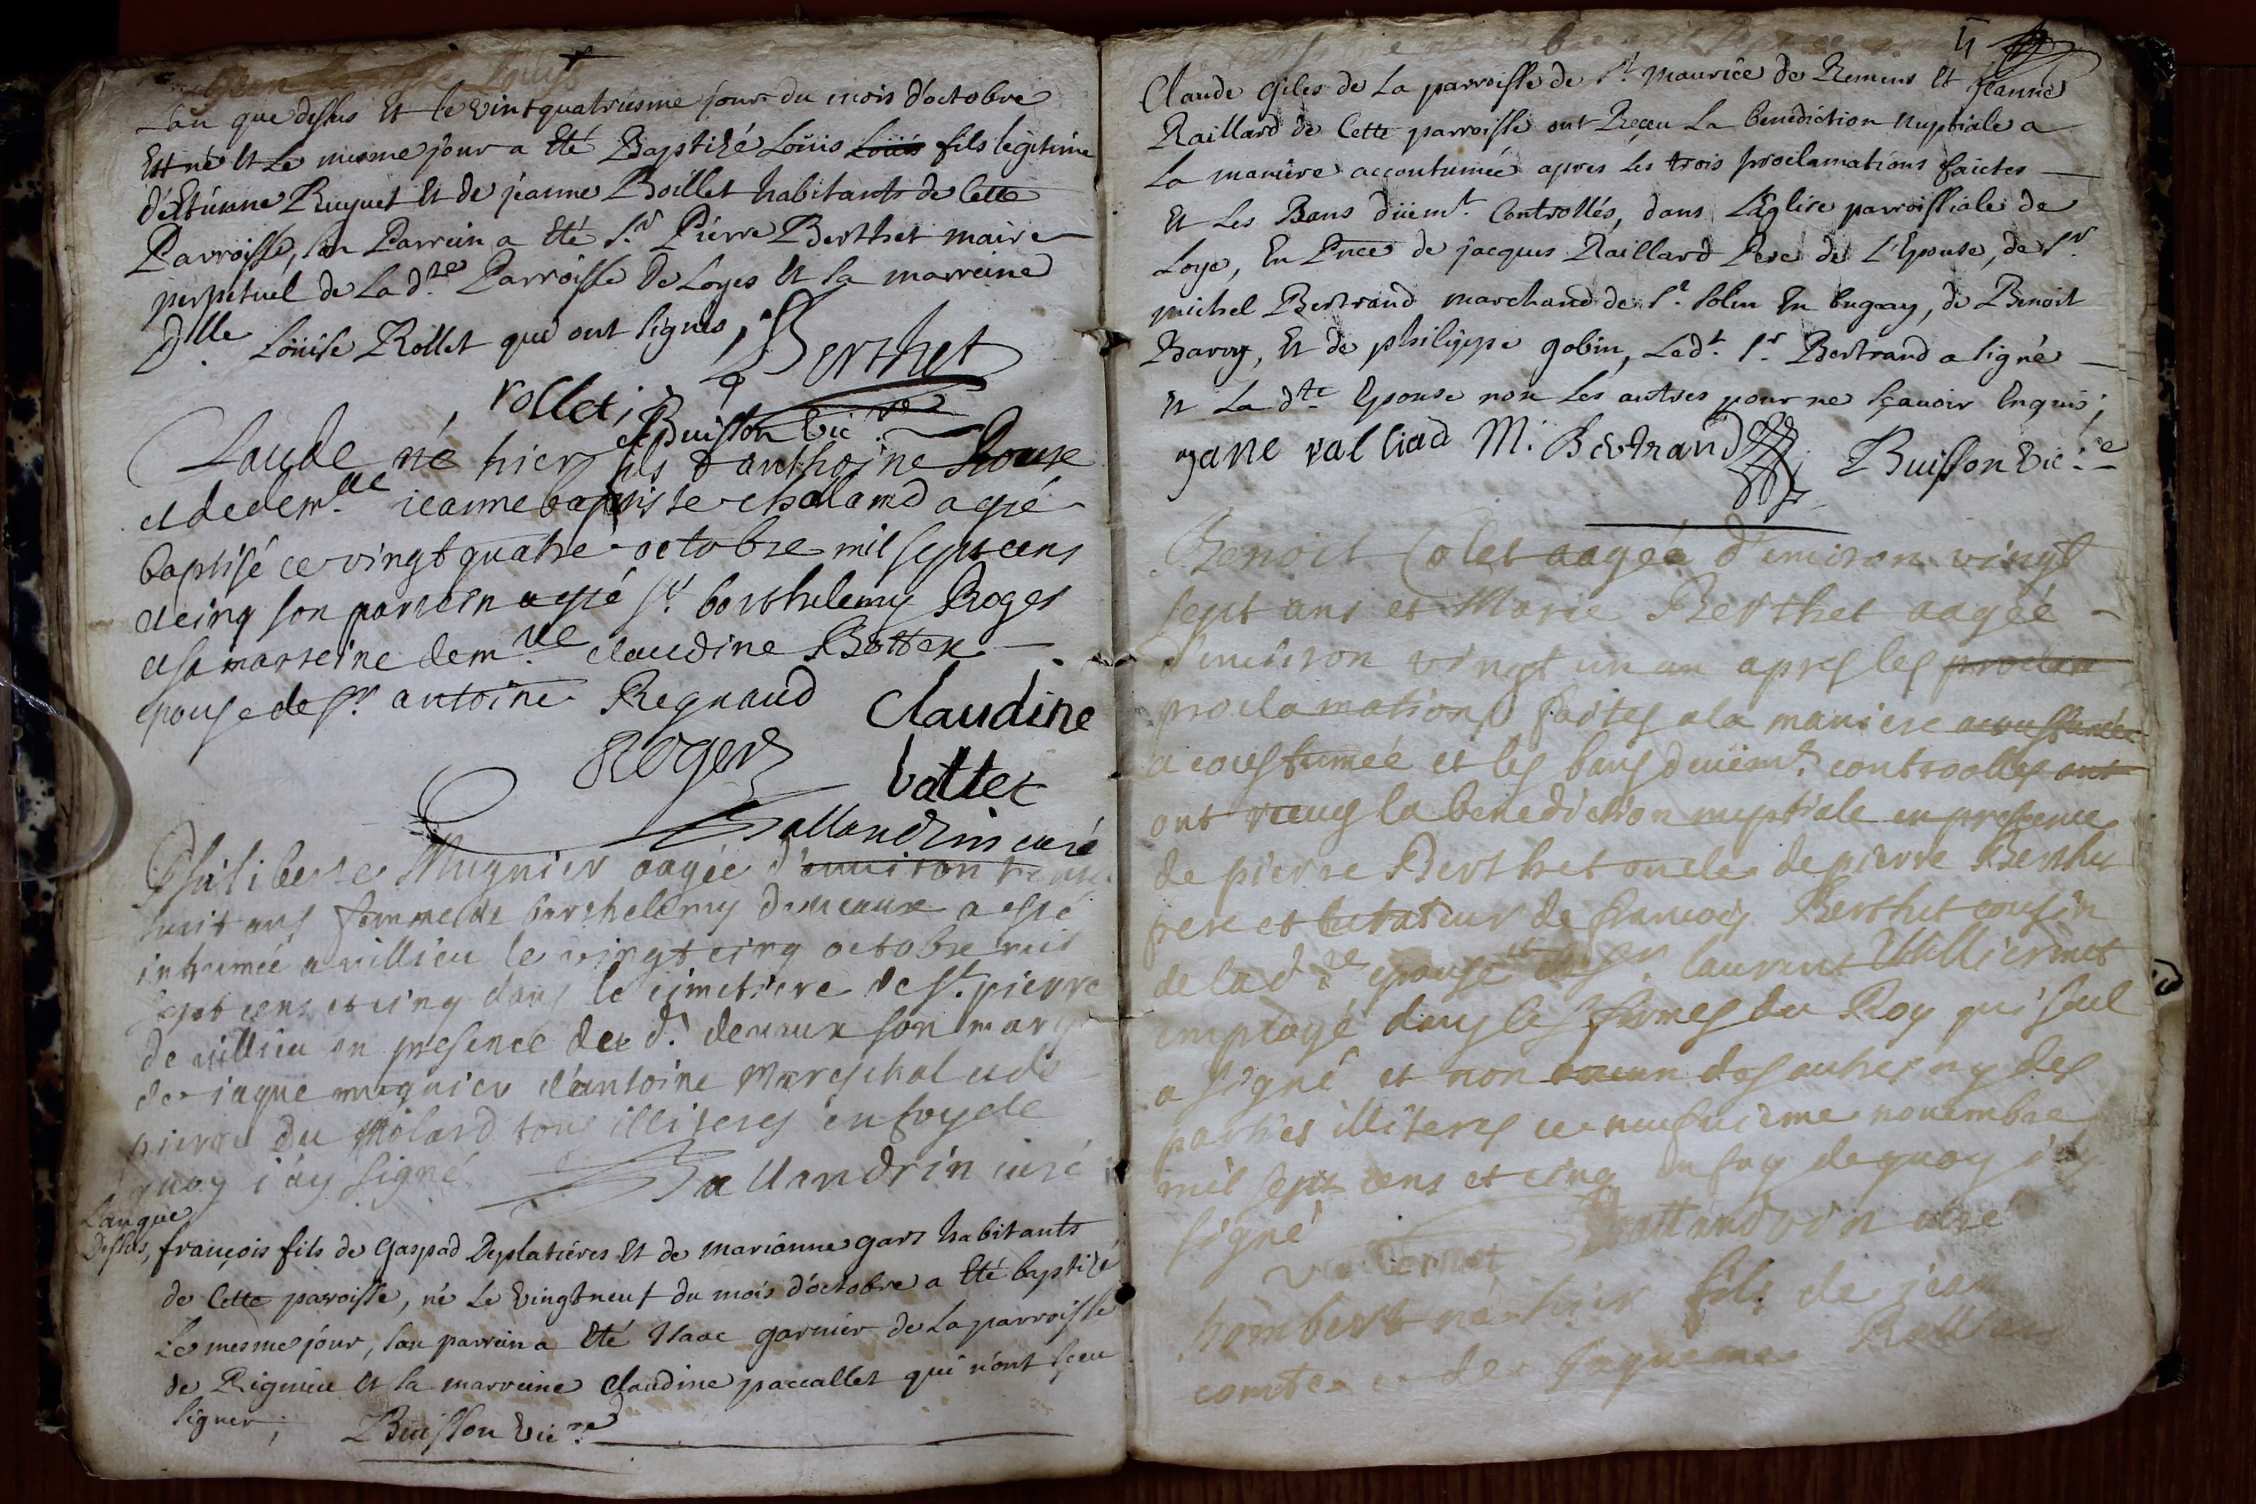 L'an que dessus Et le vintquatriesme jour du mois d'octobre
Est né Et Le mesme jour a Eté Baptizé Loüis Loüis fils légitime
d'Etienne Ruynet Et de jeanne Boillet habitants de Cette
Parroisse, son Parrein a Eté Sr. Pierre Berthet maire
perpetuel de La dte Parroisse de Loyes Et sa marreine
Dlle Loüise Rollet qui ont signés,
Berthet
rollet
Buisson vic.re
Claude né hier fils d'anthoine
et de demlle jeanne baptiste chaland a esté
baptisé ce vingt quatre octobre mil sept cens
et cinq son parrein a esté Sr barthelemy Roger
et sa marreine demlle claudine Bottex
epouse de Sr. antoine Regnaud
Claudine
Roger
bottex
Ballandrin curé
Philiberte Mugnier aagée d'environ trente
huit ans femme de barthelemy deveaux a esté
inhumée a villieu le vingt cinq octobre mil
sept cens et cinq dans le cimetiere de St. pierre
de villieu en presence du d. deveaux son mary
de jaque mugnier d'antoine Mareschal et de
pierre du Molard tous illiteres en foy de
quoy j'ay signé
Ballandrin curé
L'an que
Dessus, françois fils de Gaspad Deplatiéres Et de marianne gars habitants
de Cette paroisse, né Le vingtneuf du mois d'octobre a Eté baptizé
Le mesme jour, son parrein a Eté Isaac garnier de La parroisse
de Rignieu Et sa marreine Claudine paccallet qui n'ont sçeu
signer; Buisson vic.re
Claude Giles de La parroisse de St. Maurice de Remens Et jeanne
Raillard de Cette parroisse ont Receu La benediction Nuptiale a
La maniere accoutumée apres Les trois proclamations faictes
Et Les Bans düemt. Controllés, dans L'Eglise parroissiale de
Loye, En Pnce de jacques Raillard Pere de L'Epouse, de Sr.
michel Bertrand marchand de St. Solin En bugey, de Benoit
Et de philippe gobin, Ledt. Sr. Bertrand a signé
Et La dte Epouse non Les autres pour ne sçavoir Enquis;
jane ralliad M. Bertrand
Buisson vic.re
Benoit Colet aagée d'environ vingt
sept ans et Marie Berthet aagée
d'environ vingt un an apres les proclam
proclamations faites a la maniere acoustumée
acoustumée et les bans deuëmt. controolles ont
ont receus la benediction nuptiale en presence
de pierre Berthet oncle de pierre Berthet
pere et de francois Berthet cousin
de la dte epouse et de Sr. laurent Willermet
employé dans les fermes du Roy qui seul
a signé et non aucun des autres ny des
parties illiteres ce neufuieme nouembre
mil sept cens et cinq en foy de quoy j'ay
signé
Ballandrin curé
hombert né hier fils de jean
comte et de